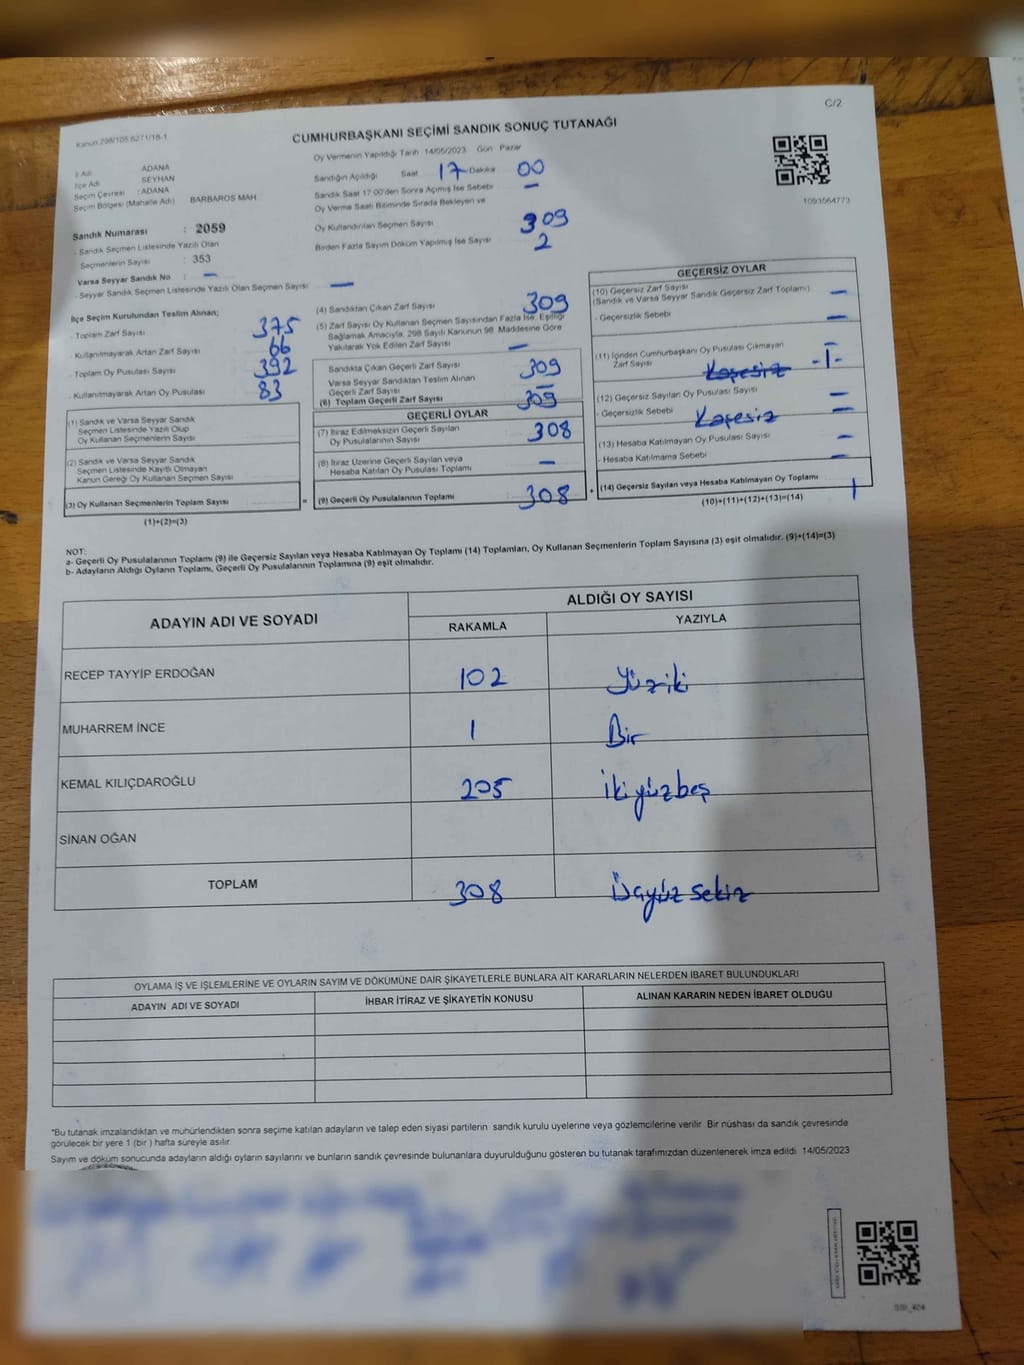 C/2
Kanun 298/105 6271/18-1
CUMHURBAŞKANI SEÇİMİ SANDIK SONUÇ TUTANAĞI
Oy Vermenin Yapıldığı Tarih 14/05/2023 Gün Pazar
İl Adı ADANA
İlçe Adı SEYHAN
Seçim Çevresi : ADANA
Seçim Bölgesi (Mahalle Adı) BARBAROS MAH
Sandık Numarası : 2059
- Sandık Seçmen Listesinde Yazılı Olan
Seçmenlerin Sayısı : 353
Varsa Seyyar Sandık No : –
- Seyyar Sandık Seçmen Listesinde Yazılı Olan Seçmen Sayısı –
Sandığın Açıldığı Saat 17 Dakika 00
Sandık Saat 17:00'den Sonra Açımış İse Sebebi –
Oy Verme Saati Bitiminde Sırada Bekleyen ve
Oy Kullandırılan Seçmen Sayısı 309
Birden Fazla Sayım Döküm Yapılmış İse Sayısı 2
1093564773
İlçe Seçim Kurulundan Teslim Alınan;
- Toplam Zarf Sayısı 375
- Kullanılmayarak Artan Zarf Sayısı 66
- Toplam Oy Pusulası Sayısı 392
- Kullanılmayarak Artan Oy Pusulası 83
(1) Sandık ve Varsa Seyyar Sandık
Seçmen Listesinde Yazılı Olup
Oy Kullanan Seçmenlerin Sayısı
(2) Sandık ve Varsa Seyyar Sandık
Seçmen Listesinde Kayıtlı Olmayan
Kanun Gereği Oy Kullanan Seçmen Sayısı
(3) Oy Kullanan Seçmenlerin Toplam Sayısı =
(1)+(2)=(3)
(4) Sandıktan Çıkan Zarf Sayısı 309
(5) Zarf Sayısı Oy Kullanan Seçmen Sayısından Fazla İse, Eşitliği
Sağlamak Amacıyla, 298 Sayılı Kanunun 98. Maddesine Göre
Yakılarak Yok Edilen Zarf Sayısı –
Sandıkta Çıkan Geçerli Zarf Sayısı 309
Varsa Seyyar Sandıktan Teslim Alınan
Geçerli Zarf Sayısı –
(6) Toplam Geçerli Zarf Sayısı 309
GEÇERLİ OYLAR
(7) İtiraz Edilmeksizin Geçerli Sayılan
Oy Pusulalarının Sayısı 308
(8) İtiraz Üzerine Geçerli Sayılan veya
Hesaba Katılan Oy Pusulası Toplamı –
(9) Geçerli Oy Pusulalarının Toplamı 308 +
GEÇERSİZ OYLAR
(10) Geçersiz Zarf Sayısı
(Sandık ve Varsa Seyyar Sandık Geçersiz Zarf Toplamı) –
- Geçersizlik Sebebi –
(11) İçinden Cumhurbaşkanı Oy Pusulası Çıkmayan
Zarf Sayısı -1-
(12) Geçersiz Sayılan Oy Pusulası Sayısı –
- Geçersizlik Sebebi –
(13) Hesaba Katılmayan Oy Pusulası Sayısı –
- Hesaba Katılmama Sebebi –
(14) Geçersiz Sayılan veya Hesaba Katılmayan Oy Toplamı 1
(10)+(11)+(12)+(13)=(14)
NOT:
a- Geçerli Oy Pusulalarının Toplamı (9) ile Geçersiz Sayılan veya Hesaba Katılmayan Oy Toplamı (14) Toplamları, Oy Kullanan Seçmenlerin Toplam Sayısına (3) eşit olmalıdır. (9)+(14)=(3)
b- Adayların Aldığı Oyların Toplamı, Geçerli Oy Pusulalarının Toplamına (9) eşit olmalıdır.
ADAYIN ADI VE SOYADI ALDIĞI OY SAYISI
RAKAMLA YAZIYLA
RECEP TAYYİP ERDOĞAN 102 Yüziki
MUHARREM İNCE 1 Bir
KEMAL KILIÇDAROĞLU 205 İkiyüzbeş
SİNAN OĞAN
TOPLAM 308 Üçyüz sekiz
OYLAMA İŞ VE İŞLEMLERİNE VE OYLARIN SAYIM VE DÖKÜMÜNE DAİR ŞİKAYETLERLE BUNLARA AİT KARARLARIN NELERDEN İBARET BULUNDUKLARI
ADAYIN ADI VE SOYADI İHBAR İTİRAZ VE ŞİKAYETİN KONUSU ALINAN KARARIN NEDEN İBARET OLDUĞU
*Bu tutanak imzalandıktan ve mühürlendikten sonra seçime katılan adayların ve talep eden siyasi partilerin sandık kurulu üyelerine veya gözlemcilerine verilir. Bir nüshası da sandık çevresinde
görülecek bir yere 1 (bir ) hafta süreyle asılır.
Sayım ve döküm sonucunda adayların aldığı oyların sayılarını ve bunların sandık çevresinde bulunanlara duyurulduğunu gösteren bu tutanak tarafımızdan düzenlenerek imza edildi. 14/05/2023